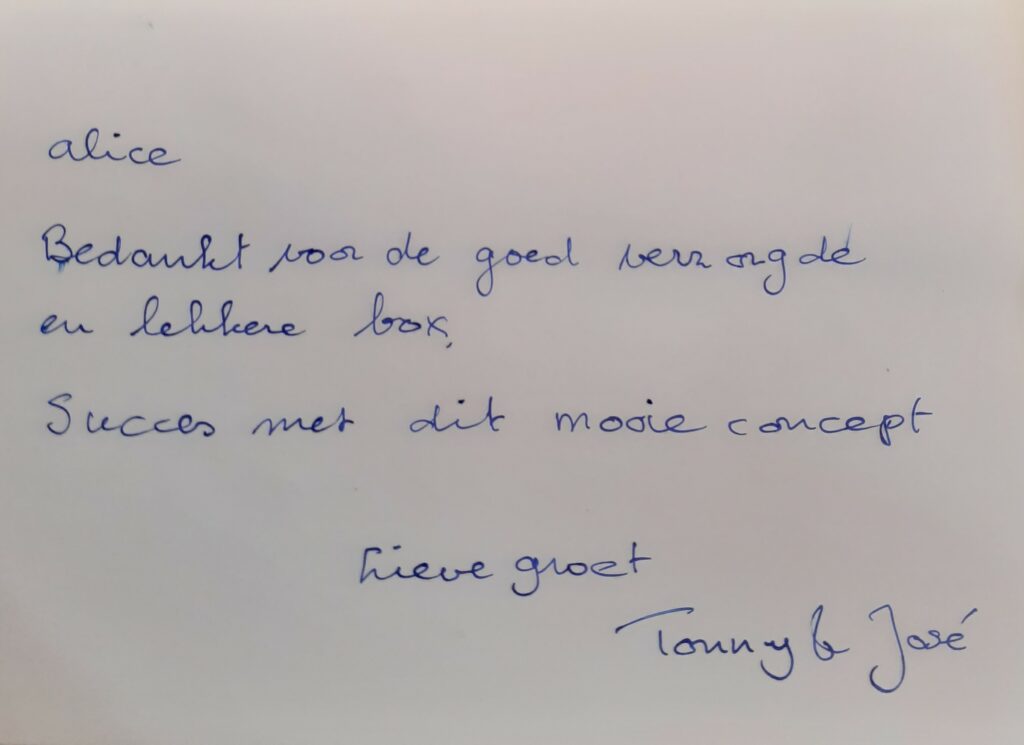 alice
Bedankt voor de goed verzorgde
en lekkere box,
Succes met dit mooie concept
Lieve groet
Tonny & José